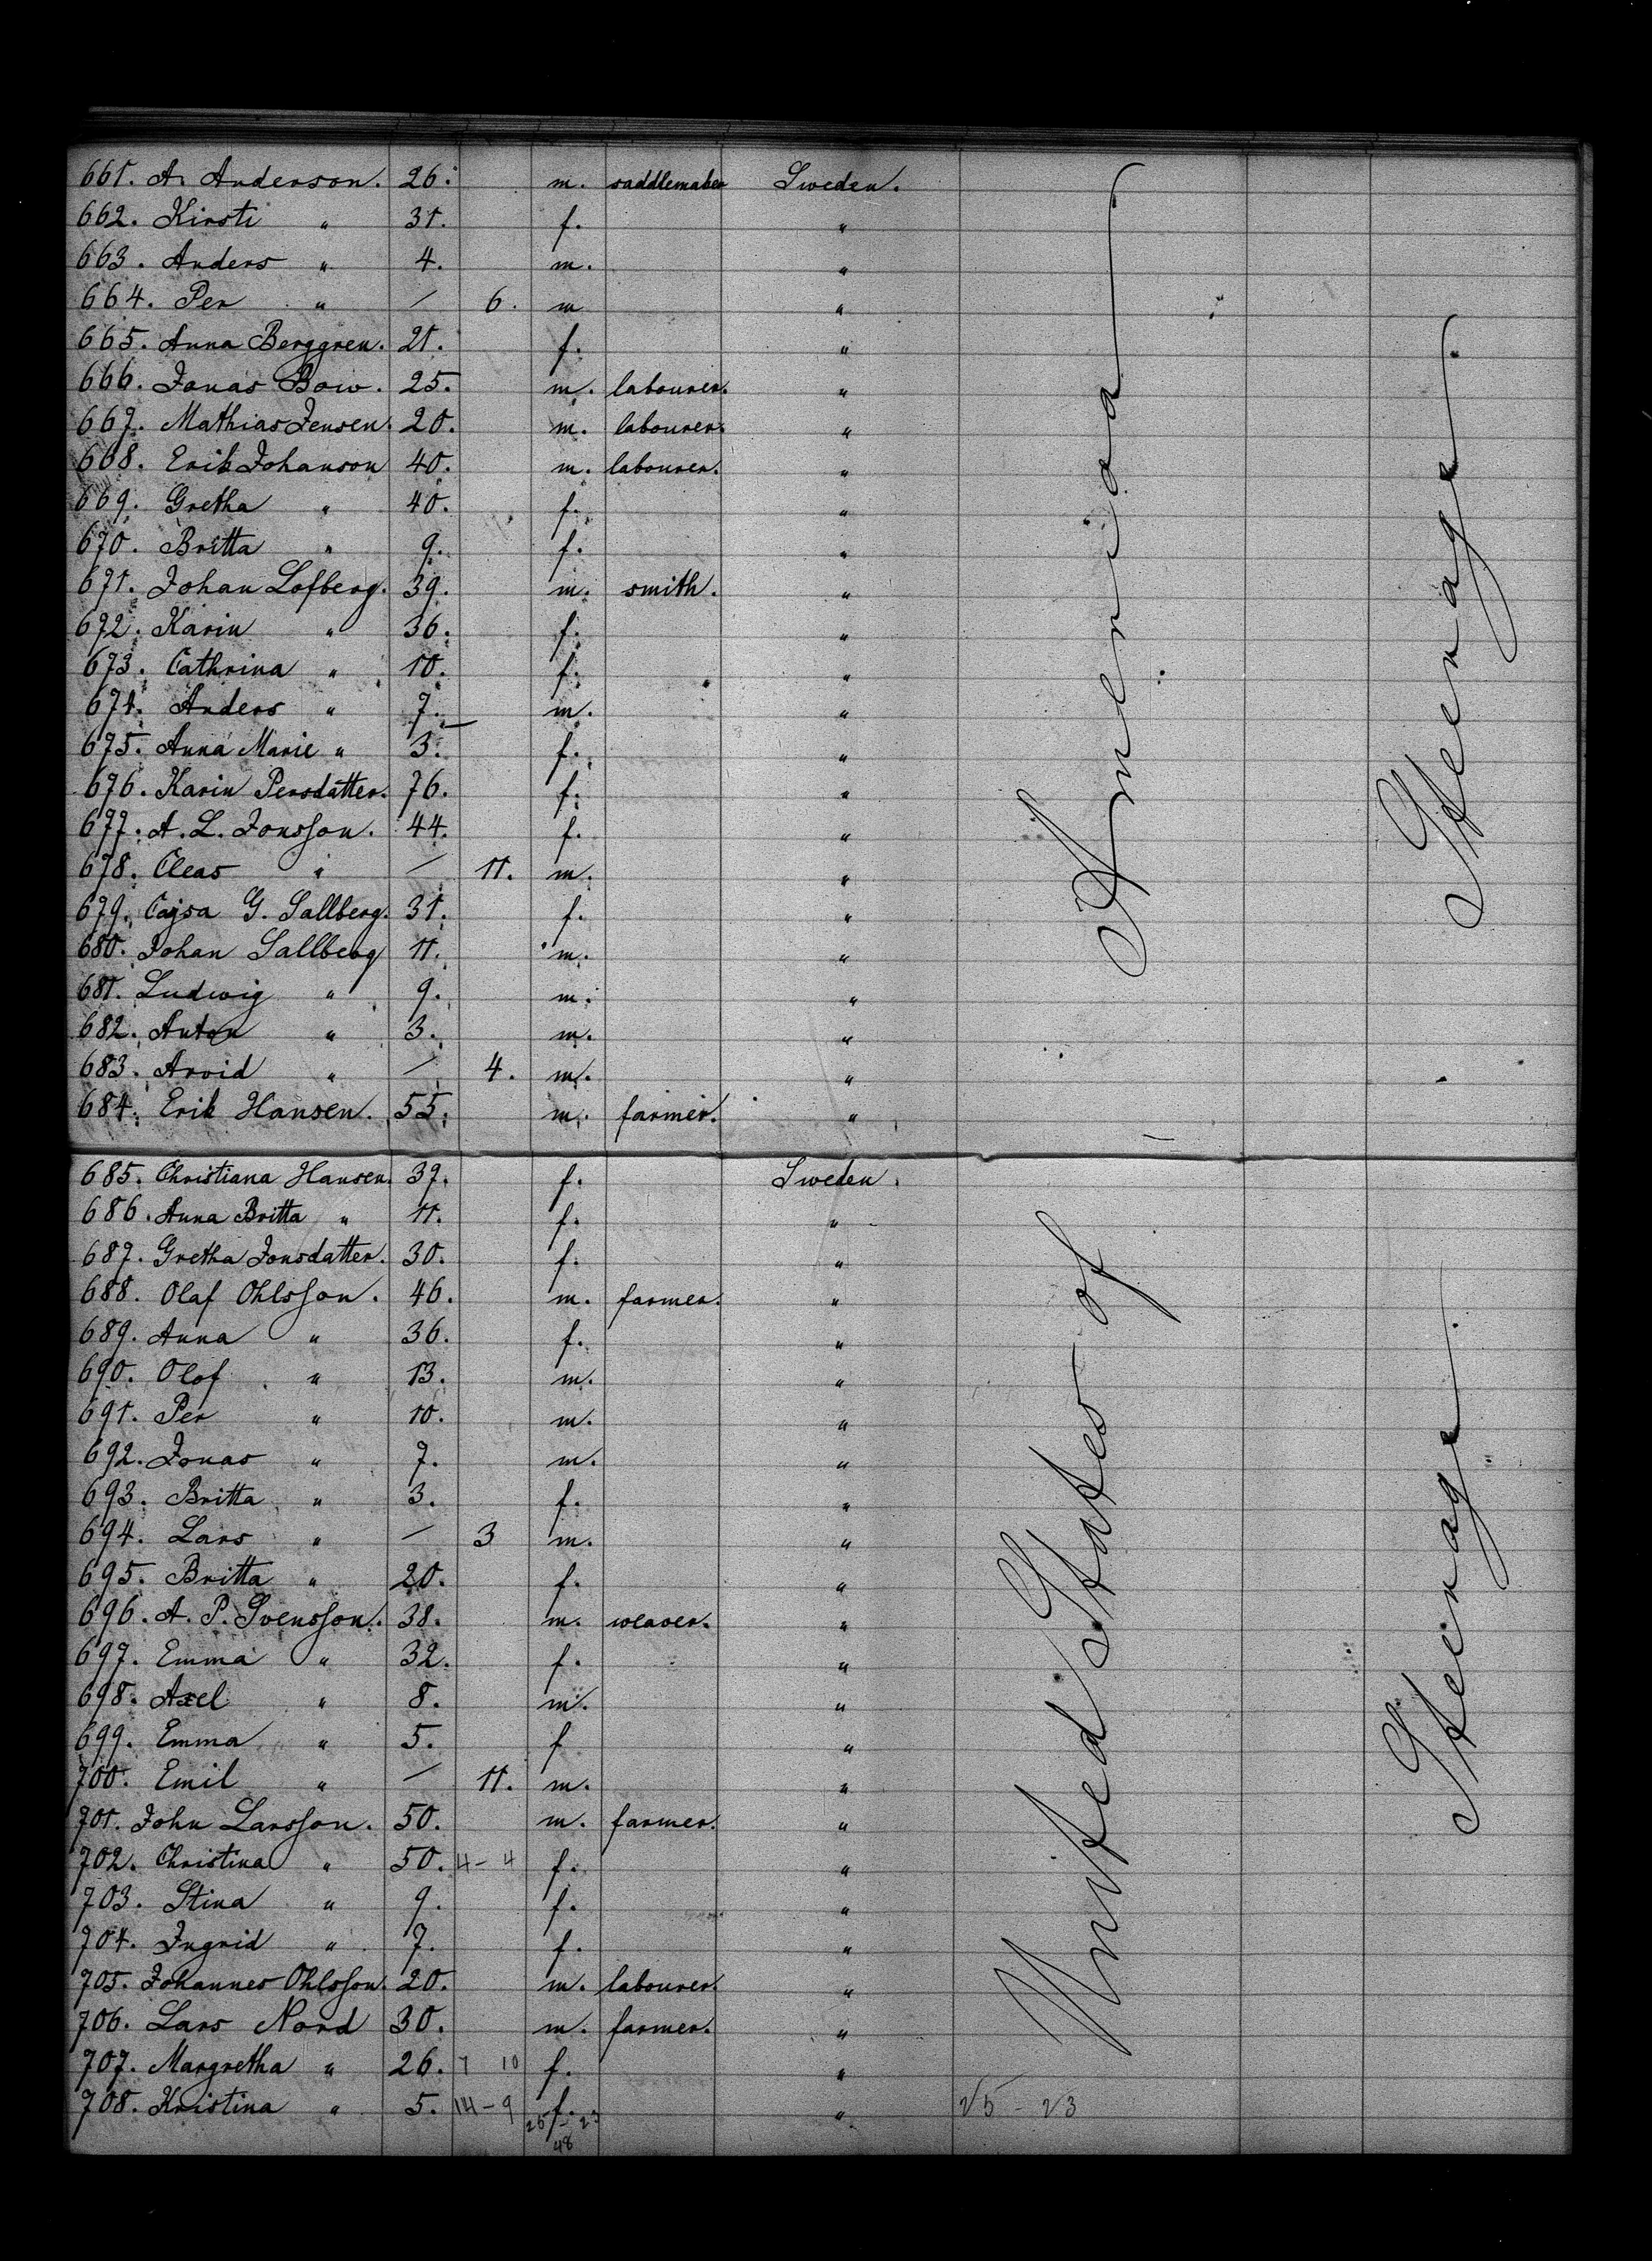 661. A. Anderson. 26. m. saddlemaker Sweden.
662. Kirsti " 31. f. "
663. Anders " 4. m. "
664. Per " / 6. m "
665. Anna Berggren. 21. f. "
666. Jonas Bow. 25. m. labourer. "
667. Mathias Jensen. 20. m. labourer. "
668. Erik Johanson 40. m. labourer. "
669. Gretha " 40. f. "
670. Britta " 9. f. "
671. Johan Lofberg. 39. m. smith. "
672. Karin " 36. f. "
673. Cathrina " 10. f. "
674. Anders " 7. m. "
675. Anna Marie " 3. f. "
676. Karin Persdatter. 76. f. "
677. A. L. Jonsson. 44. f. "
678. Cleas " / 11. m. "
679. Cajsa G. Sallberg. 31. f. "
680. Johan Sallberg 11. m. "
681. Ludwig " 9. m. "
682. Anton " 3. m. "
683. Arvid " / 4. m. "
684. Erik Hansen. 55. m. farmer. "
685. Christiana Hansen. 39. f. Sweden.
686. Anna Britta " 11. f. "
687. Gretha Jonsdatter. 30. f. "
688. Olaf Ohlsson. 46. m. farmer. "
689. Anna " 36. f. "
690. Olof " 13. m. "
691. Per " 10. m. "
692. Jonas " 7. m. "
693. Britta " 3. f. "
694. Lars " / 3 m. "
695. Britta " 20. f. "
696. A. P. Svensson. 38. m. weaver. "
697. Emma " 32. f. "
698. Axel " 8. m. "
699. Emma " 5. f "
700. Emil " / 11. m. "
701. John Larsson. 50. m. farmer. "
702. Christina " 50. 4 - 4 f. "
703. Stina " 9. f. "
704. Ingrid " 7. f. "
705. Johannes Ohlsson. 20. m. labourer. "
706. Lars Nord 30. m. farmer. "
707. Margretha " 26. 7 10 f. "
708. Kristina " 5. 14 - 9 f. " 25 - 23
25 - 23
48
United States of America
Steerage
Steerage